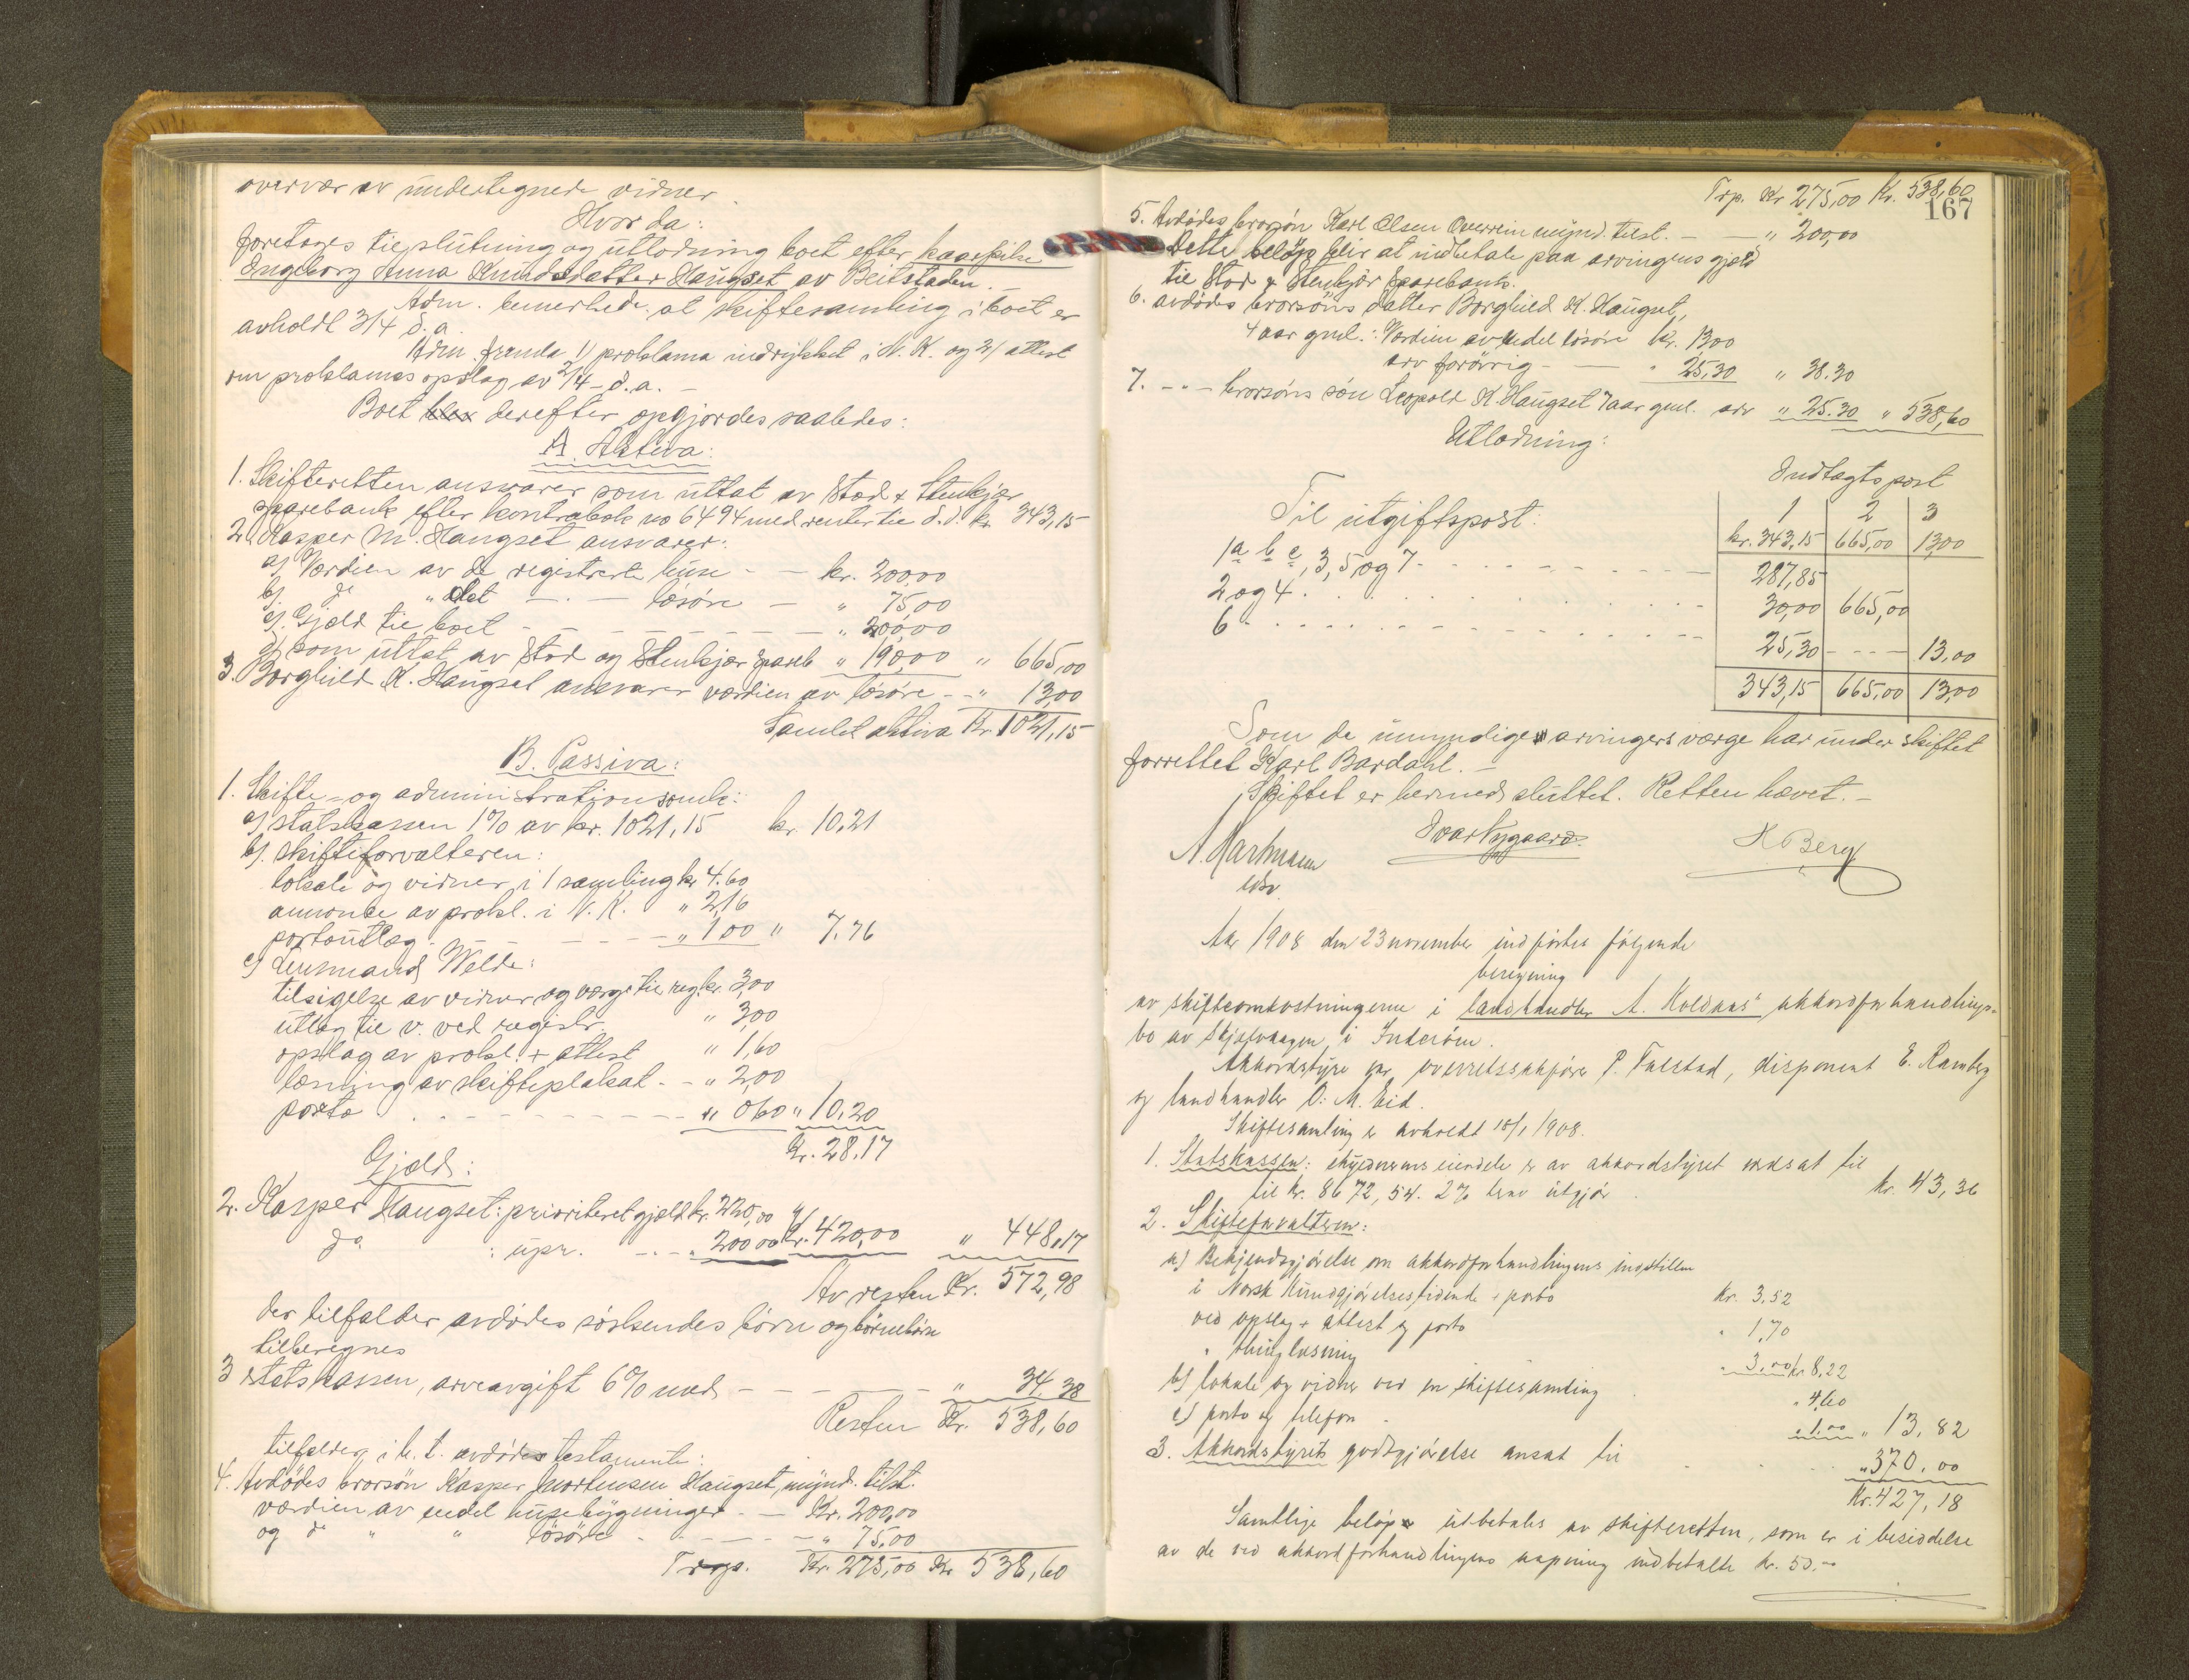 overvær av undertegnede vidner
Hvorda:
foretoges til slutning og utlodning boet efter kaarpike
Ingeborg Anna Knudsdatter Haugset av Beitstaden.
Adm. bemerkede at skiftesamling i boet er
avholdt 3/4 d.a.
Adm. fremla 1) proklama indrykket i N.K. og 2) attest
om proklamas opslag av 2/4 d.a. -
Boet blev derefter opgjordes saaledes:
A. Aktiva:
1. Skifteretten ansvarer som uttat av Stod & Stenkjær
sparebank efter kontrabok no 6494 med renter til d.d. kr. 343,15
2. Kasper M. Haugset ansvarer:
a) Værdien av de registrerte huse - - kr. 200,00
b) do " det - . - løsøre - " 75,00
c) Gjæld til boet - - - - - " 200,00
d) som uttat av Stod og Stenkjær spareb " 190,00 " 665,00
3. Borghild K. Haugset ansvarer værdien av løsøre - - " 13,00
Samlet aktiva Kr. 1021,15
B. Passiva:
1. Skifte- og administrationsomk:
a) statskassen 1% av kr. 1021,15 kr. 10,21
b) skifteforvalteren:
lokale og vidner i 1 samling kr 4.60
annonce av prokl. i N.K. " 2,16
portoutlæg - - - - " 1 00 " 7,76
c) Lensmand Welde:
tilsigelse av vidner og værge til reg. kr. 3,00
utlæg til v. ved registr. " 3,00
opslag av prokl. + attest " 1,60
læsning av skifteplakat - - " 2,00
porto - - - - - " 0 60 " 10,20
Kr. 28,17
Gjæld:
2. Kasper Haugset: prioriteret gjæld kr. 220,00
do : upr. - - " 200 00 kr. 420,00 " 448,17
Av resten Kr. 572,98
der tilfalder avdødes søskendes børn og børnebørn
tilberegnes
3 statskassen, arveavgift 6% med - - - - " 34,38
Resten Kr. 538,60
tilfalder i h. t. avdødes testamente:
4. Avdødes brorsøn Kasper Mortensen Haugset, mynd. tilst.
værdien av endel husebygninger - - Kr. 200,00
og do " " løsøre - - - - " 75,00
Trsp. Kr. 275,00 Kr 538,60
167
Trp. Kr 275,00 Kr. 538,60
5. Avdødes brorsøn Karl Olsen Overrein mynd. tilst. - - " 200,00
Dette beløp blir at indbetale paa arvingens gjæld
til Stod & Stenkjær Sparebank.
6. avdødes brorsøns datter Borghild K. Haugset,
4 aar gml.: Værdien av endel løsøre kr. 13 00
arv forøvrig - - " 25,30 " 38.30
7. - " - brorsøns søn Leopold K. Haugset 7 aar gml. arv " 25.30 " 538,60
Utlodning:
Indtagtspost
Til utgiftspost: 1 2 3
kr. 343,15 665,00 13,00
1a b c, 3, 5 og 7 - - - - 287,85
2 og 4 . . . . . 30,00 665,00
6 - - - - - 25,30 - - - 13,00
343,15 665,00 13,00
Som de umyndige arvingers værge har under skiftet
forrettet Karl Bardahl. -
Skiftet er hermed sluttet. Retten hævet. -
A. Hartmann Ivar Nygaard H Berg
Aar 1908 den 23 november indførtes følgende
beregning
av skifteomkostningerne i landhandler A. Koldaas' akkordforhandlings-
bo av Skjelvaagen i Inderøen.
Akkordstyre var overretssakfører P. Falstad, disponent E. Ramberg
og landhandler O. M. Eid.
Skiftesamling er avholdt 18/1 1908.
1. Statskassen: skyldnerens eiendele er av akkordstyret ansat til
til kr. 8672,54. 2% herav utgjør . kr. 43,36
2. Skifteforvalteren:
a) Bekjendtgjørelse om akkordforhandlingens indstillen
i Norsk Kundgjørelsestidende + porto kr. 3,52
ved opslag + attest og porto " 1,70
" thinglæsning " 3,00 kr 8,22
b) lokale og vidner ved en skiftesamling . " 4,60
c) porto og telefon - " 1.00 " 13,82
3. Akkordstyrets godtgjørelse ansat til . . . " 370,00
Kr. 427,18
Samtlige beløp utbetales av skifteretten, som er i besiddelse
av de ved akkordforhandlingens aapning indbetalte kr. 50.-